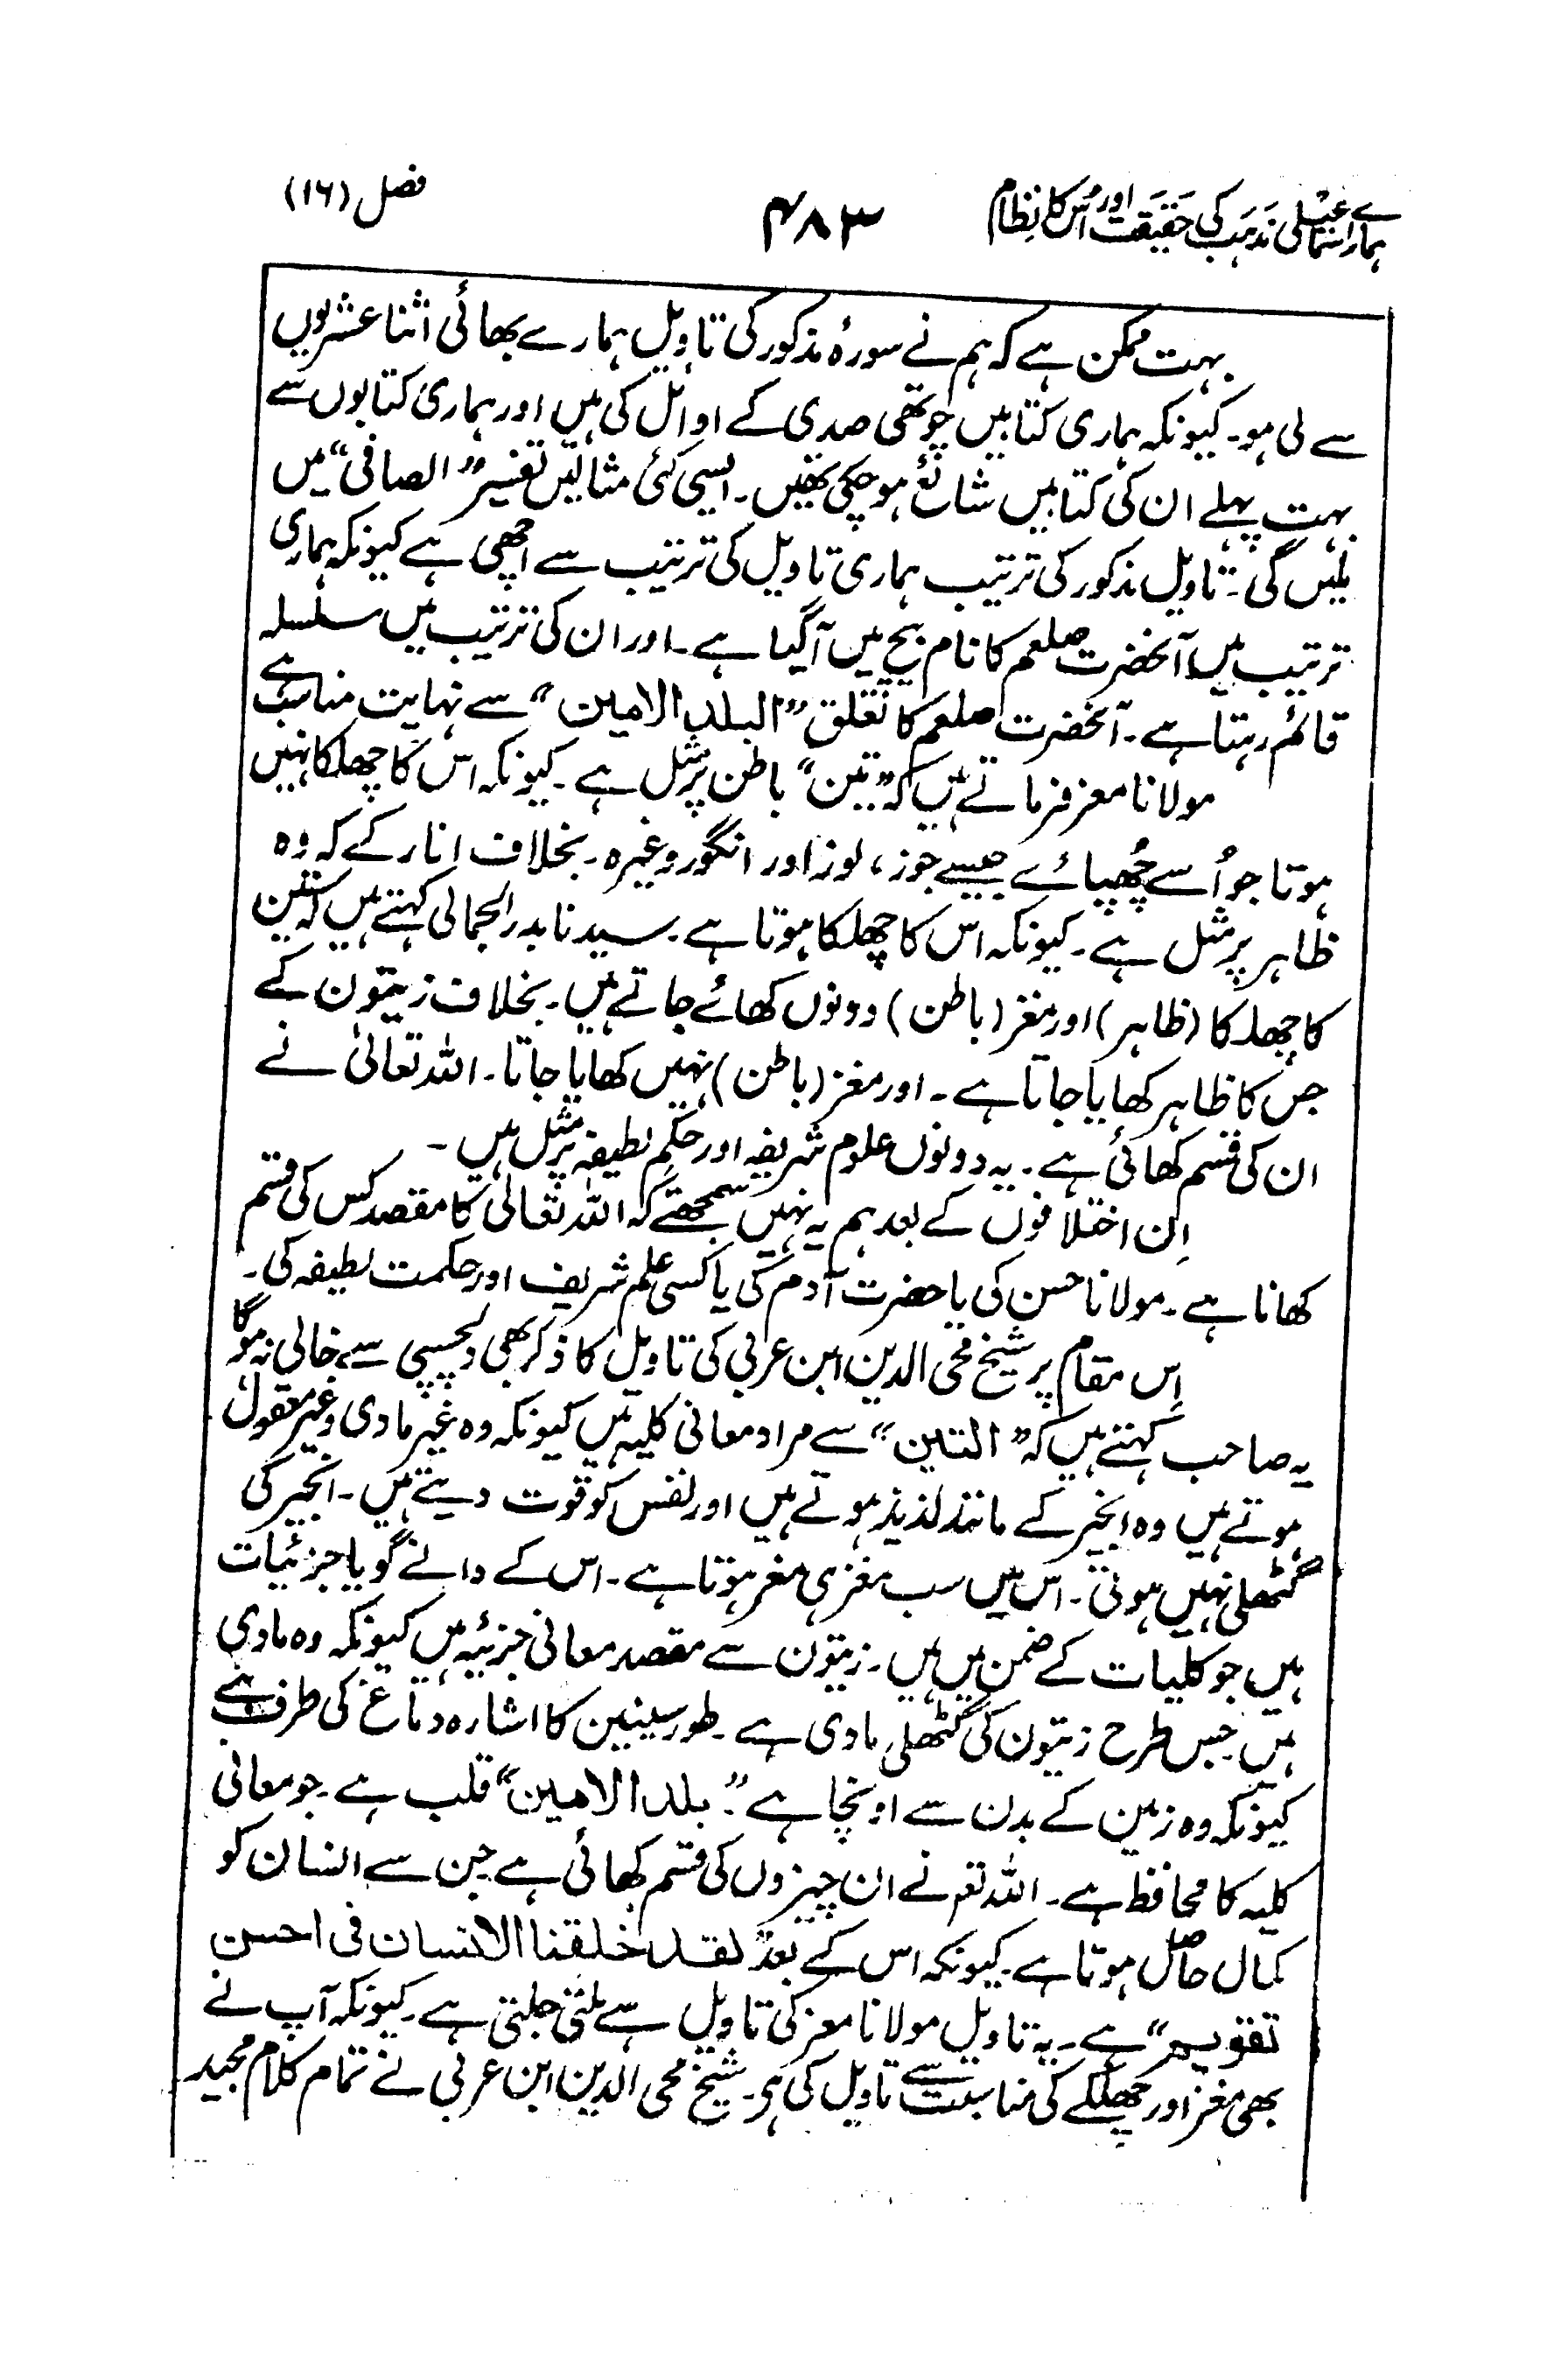 ہمارے اسماعیلی مذہب کی حقیقت اور اُس کا نظام
۴۸۳
فصل (۱۶)
بہت ممکن ہے کہ ہم نے سورۂ مذکور کی تاویل ہمارے بھائی اثنا عشریوں
سے لی ہو۔ کیونکہ ہماری کتابیں چوتھی صدی کے اوائل کی ہیں اور ہماری کتابوں سے
بہت پہلے ان کی کتابیں شائع ہوچکی تھیں۔ ایسی کئی مثالیں تفسیر "الصافی" میں
ملیں گی۔ تاویل مذکور کی ترتیب ہماری تاویل کی ترتیب سے اچھی ہے کیونکہ ہماری
ترتیب میں آنحضرت صلعم کا نام بیچ میں آگیا ہے۔ اور ان کی ترتیب میں سلسلہ
قائم رہتا ہے۔ آنحضرت صلعم کا تعلق "البلد الامین" سے نہایت مناسب ہے
مولانا معز فرماتے ہیں کہ "تین" باطن پر مثل ہے۔ کیونکہ اس کا چھلکا نہیں
ہوتا جو اُسے چُھپائے جیسے جوز، لوز اور انگور وغیرہ۔ بخلاف انار کے کہ وہ
ظاہر پر مثل ہے۔ کیونکہ اس کا چھلکا ہوتا ہے۔ سیدنا بدر الجمالی کہتے ہیں کہ تین
کا چھلکا (ظاہر) اور مغز (باطن) دونوں کھائے جاتے ہیں۔ بخلاف زیتون کے
جس کا ظاہر کھایا جاتا ہے۔ اور مغز (باطن) نہیں کھایا جاتا۔ اللہ تعالیٰ نے
ان کی قسم کھائی ہے۔ یہ دونوں علوم شریفہ اور حکمِ لطیفہ پر مثل ہیں۔
اِن اختلافوں کے بعد ہم یہ نہیں سمجھتے کہ اللہ تعالیٰ کا مقصد کس کی قسم
کھانا ہے۔ مولانا حسن کی یا حضرت آدم کی یا کسی علم شریف اور حکمت لطیفہ کی۔
اِس مقام پر شیخ محی الدین ابن عربی کی تاویل کا ذکر بھی دلچسپی سے خالی نہ ہوگا
یہ صاحب کہتے ہیں کہ "التین" سے مراد معانی کلیہ ہیں کیونکہ وہ غیر مادی و غیر معقول
ہوتے ہیں وہ انجیر کے مانند لذیذ ہوتے ہیں اور نفس کو قوت دیتے ہیں۔ انجیر کی
گٹھلی نہیں ہوتی۔ اس میں سب مغز ہی مغز ہوتا ہے۔ اس کے دانے گویا جزئیات
ہیں جو کلیات کے ضمن میں ہیں۔ زیتون سے مقصد معانی جزئیہ ہیں کیونکہ وہ مادی
ہیں جس طرح زیتون کی گٹھلی مادی ہے۔ طور سینین کا اشارہ دماغ کی طرف ہے
کیونکہ وہ زمین کے بدن سے اونچا ہے۔ "بلد الامین" قلب ہے۔ جو معانی
کلیہ کا محافظ ہے۔ اللہ تعم نے ان چیزوں کی قسم کھائی ہے جن سے انسان کو
کمال حاصل ہوتا ہے۔ کیونکہ اس کے بعد "لقد خلقنا الانسان فی احسن
تقویم" ہے۔ یہ تاویل مولانا معز کی تاویل سے ملتی جلتی ہے۔ کیونکہ آپ نے
بھی مغز اور چھلکے کی مناسبت سے تاویل کی ہے۔ شیخ محی الدین ابن عربی نے تمام کلام مجید